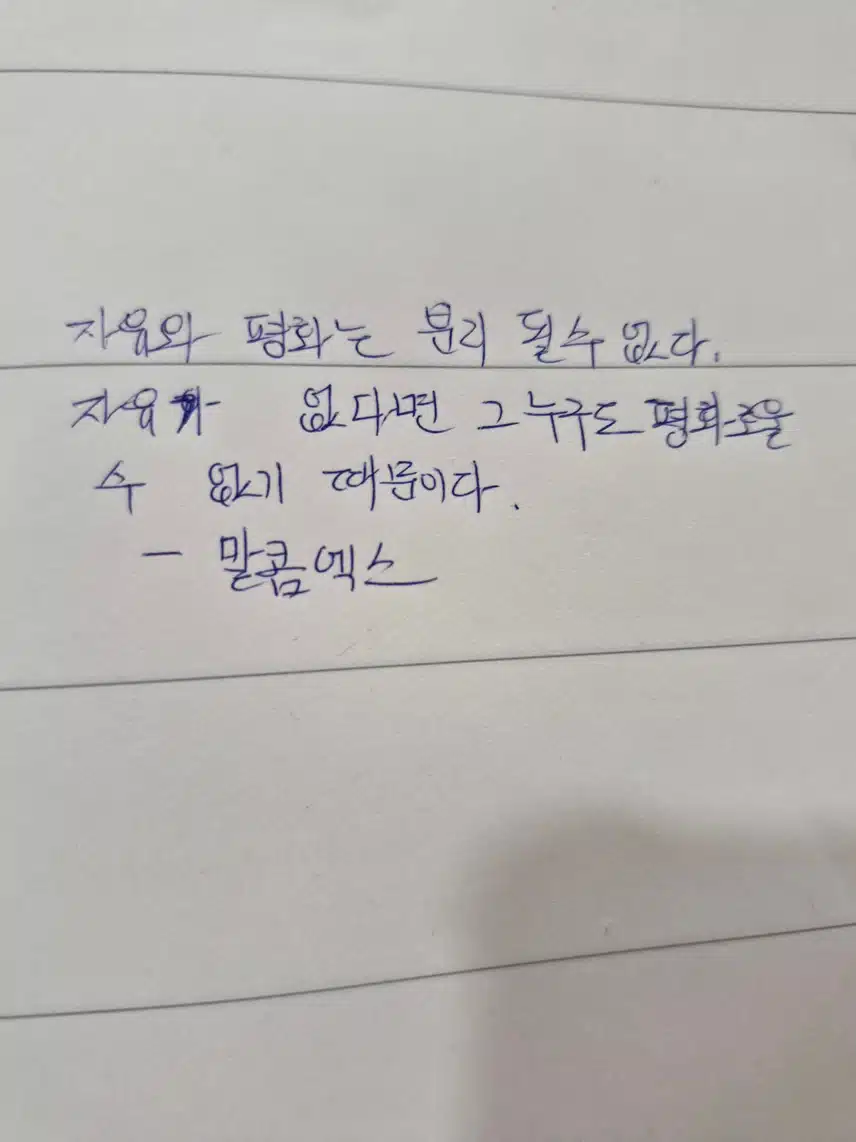 자유와 평화는 분리 될수 없다.
자유가 없다면 그 누구도 평화로울
수 없기 때문이다.
- 말콤엑스